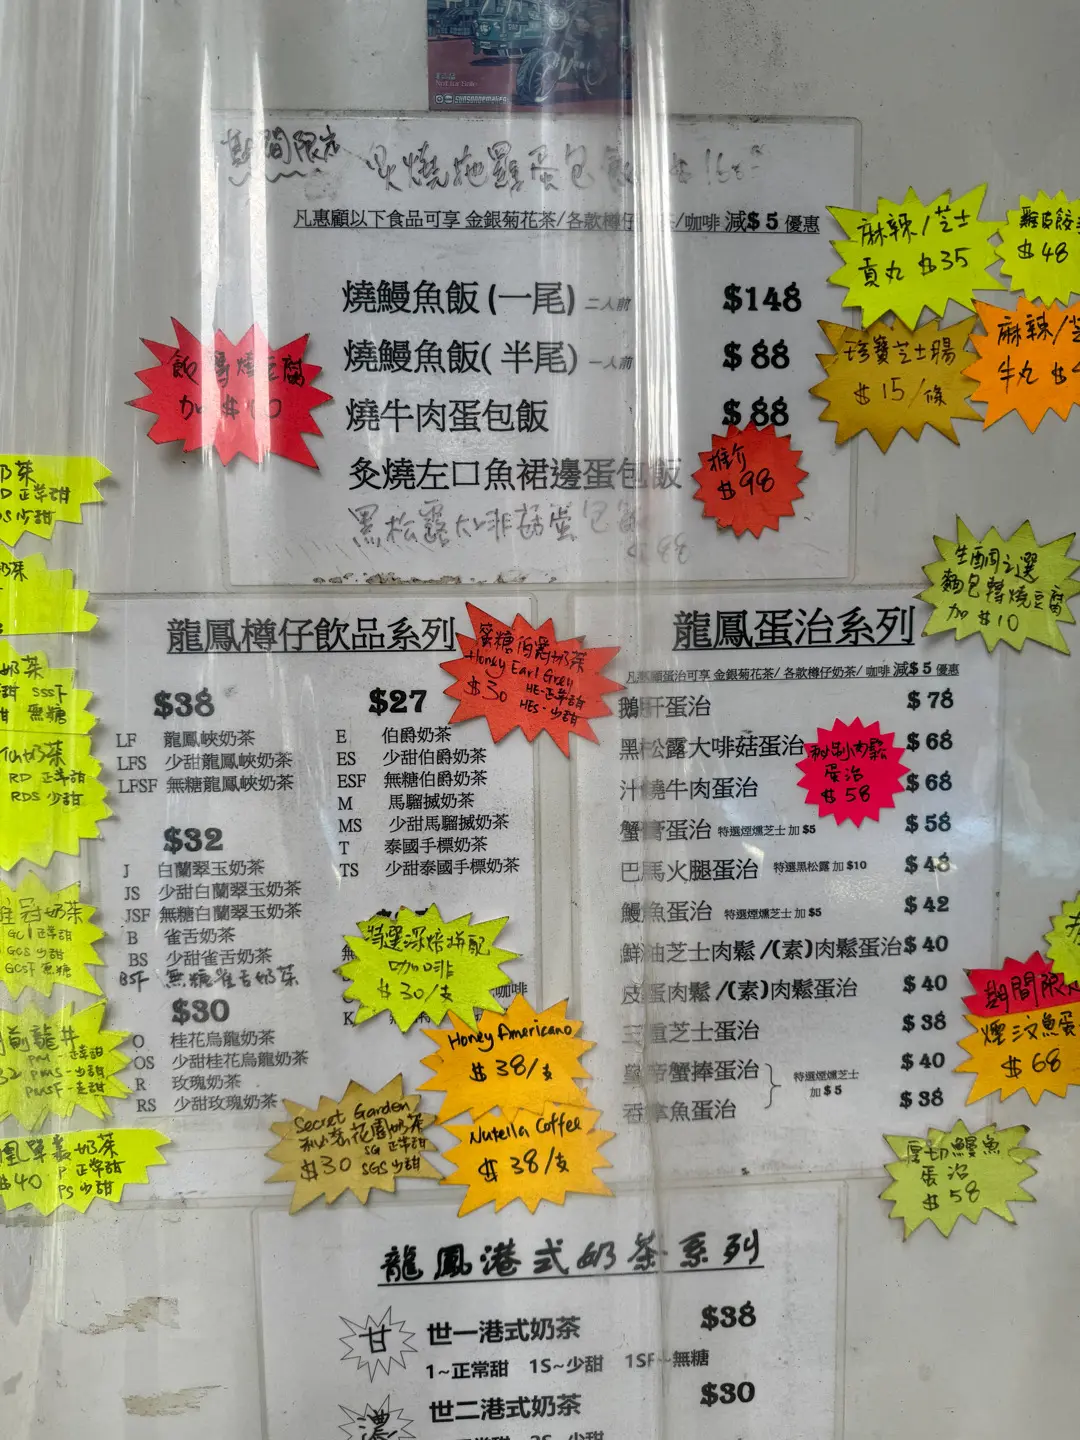 期間限定
凡惠顧以下食品可享 金銀菊花茶/各款樽仔 茶/咖啡 減$5 優惠
燒鰻魚飯 (一尾) 二人前 $148
燒鰻魚飯( 半尾) 一人前 $ 88
燒牛肉蛋包飯 $ 88
炙燒左口魚裙邊蛋包飯
推介
$98
加 $10
麻辣/芝士
貢丸 $35
雞皮餃
$48
珍寶芝士腸
$15/條
麻辣/芝
牛丸 $
生酮之選
麵包轉燒豆腐
加 $10
龍鳳樽仔飲品系列
$38
LF 龍鳳峽奶茶
LFS 少甜龍鳳峽奶茶
LFSF 無糖龍鳳峽奶茶
$32
J 白蘭翠玉奶茶
JS 少甜白蘭翠玉奶茶
JSF 無糖白蘭翠玉奶茶
B 雀舌奶茶
BS 少甜雀舌奶茶
BSF 無糖雀舌奶茶
$30
O 桂花烏龍奶茶
OS 少甜桂花烏龍奶茶
R 玫瑰奶茶
RS 少甜玫瑰奶茶
$27
E 伯爵奶茶
ES 少甜伯爵奶茶
ESF 無糖伯爵奶茶
M 馬騮搣奶茶
MS 少甜馬騮搣奶茶
T 泰國手標奶茶
TS 少甜泰國手標奶茶
咖啡
K
蜜糖伯爵奶茶
Honey Earl Grey
$30 HE-正常甜
HES-少甜
特選深焙拼配
咖啡
$30/支
Honey Americano
$38/支
Nutella Coffee
$38/支
Secret Garden
秘密花園奶茶
$30 SG 正常甜
SGS 少甜
龍鳳蛋治系列
凡惠顧蛋治可享 金銀菊花茶/ 各款樽仔奶茶/ 咖啡 減$ 5 優惠
鵝肝蛋治 $ 78
黑松露大啡菇蛋治 $ 68
汁燒牛肉蛋治 $ 68
蟹膏蛋治 特選煙燻芝士 加 $5 $ 58
巴馬火腿蛋治 特選黑松露 加 $10 $ 48
鰻魚蛋治 特選煙燻芝士 加 $5 $ 42
鮮油芝士肉鬆 /(素)肉鬆蛋治 $ 40
皮蛋肉鬆 /(素)肉鬆蛋治 $ 40
三重芝士蛋治 $ 38
皇帝蟹捧蛋治 $ 40
吞拿魚蛋治 $ 38
特選煙燻芝士
加 $ 5
秘製肉鬆
蛋治
$58
期間限
$68
厚切鰻魚
蛋治
$58
奶茶
正常甜
少甜
奶茶
奶茶
SSSF
無糖
仙奶茶
RD 正常甜
RDS 少甜
冠奶茶
GC 正常甜
GCS 少甜
GCSF 無糖
龍井
正常甜
PMS-少甜
PMSF-走甜
奶茶
$40 P 正常甜
PS 少甜
龍鳳港式奶茶系列
甘 世一港式奶茶 $38
1~正常甜 1S~少甜 1SF~無糖
濃 世二港式奶茶 $30